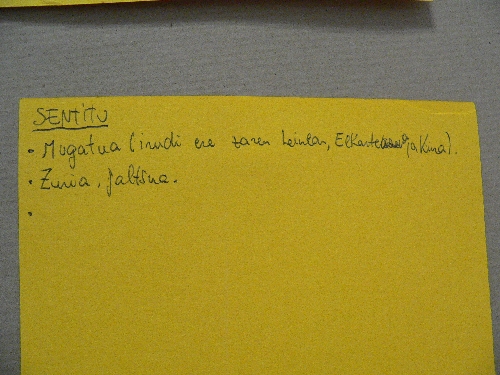 SENTITU
• Mugatua (irudi ere zaren heinean, Elkartea jakina).
• Zuria, faltsua.
•